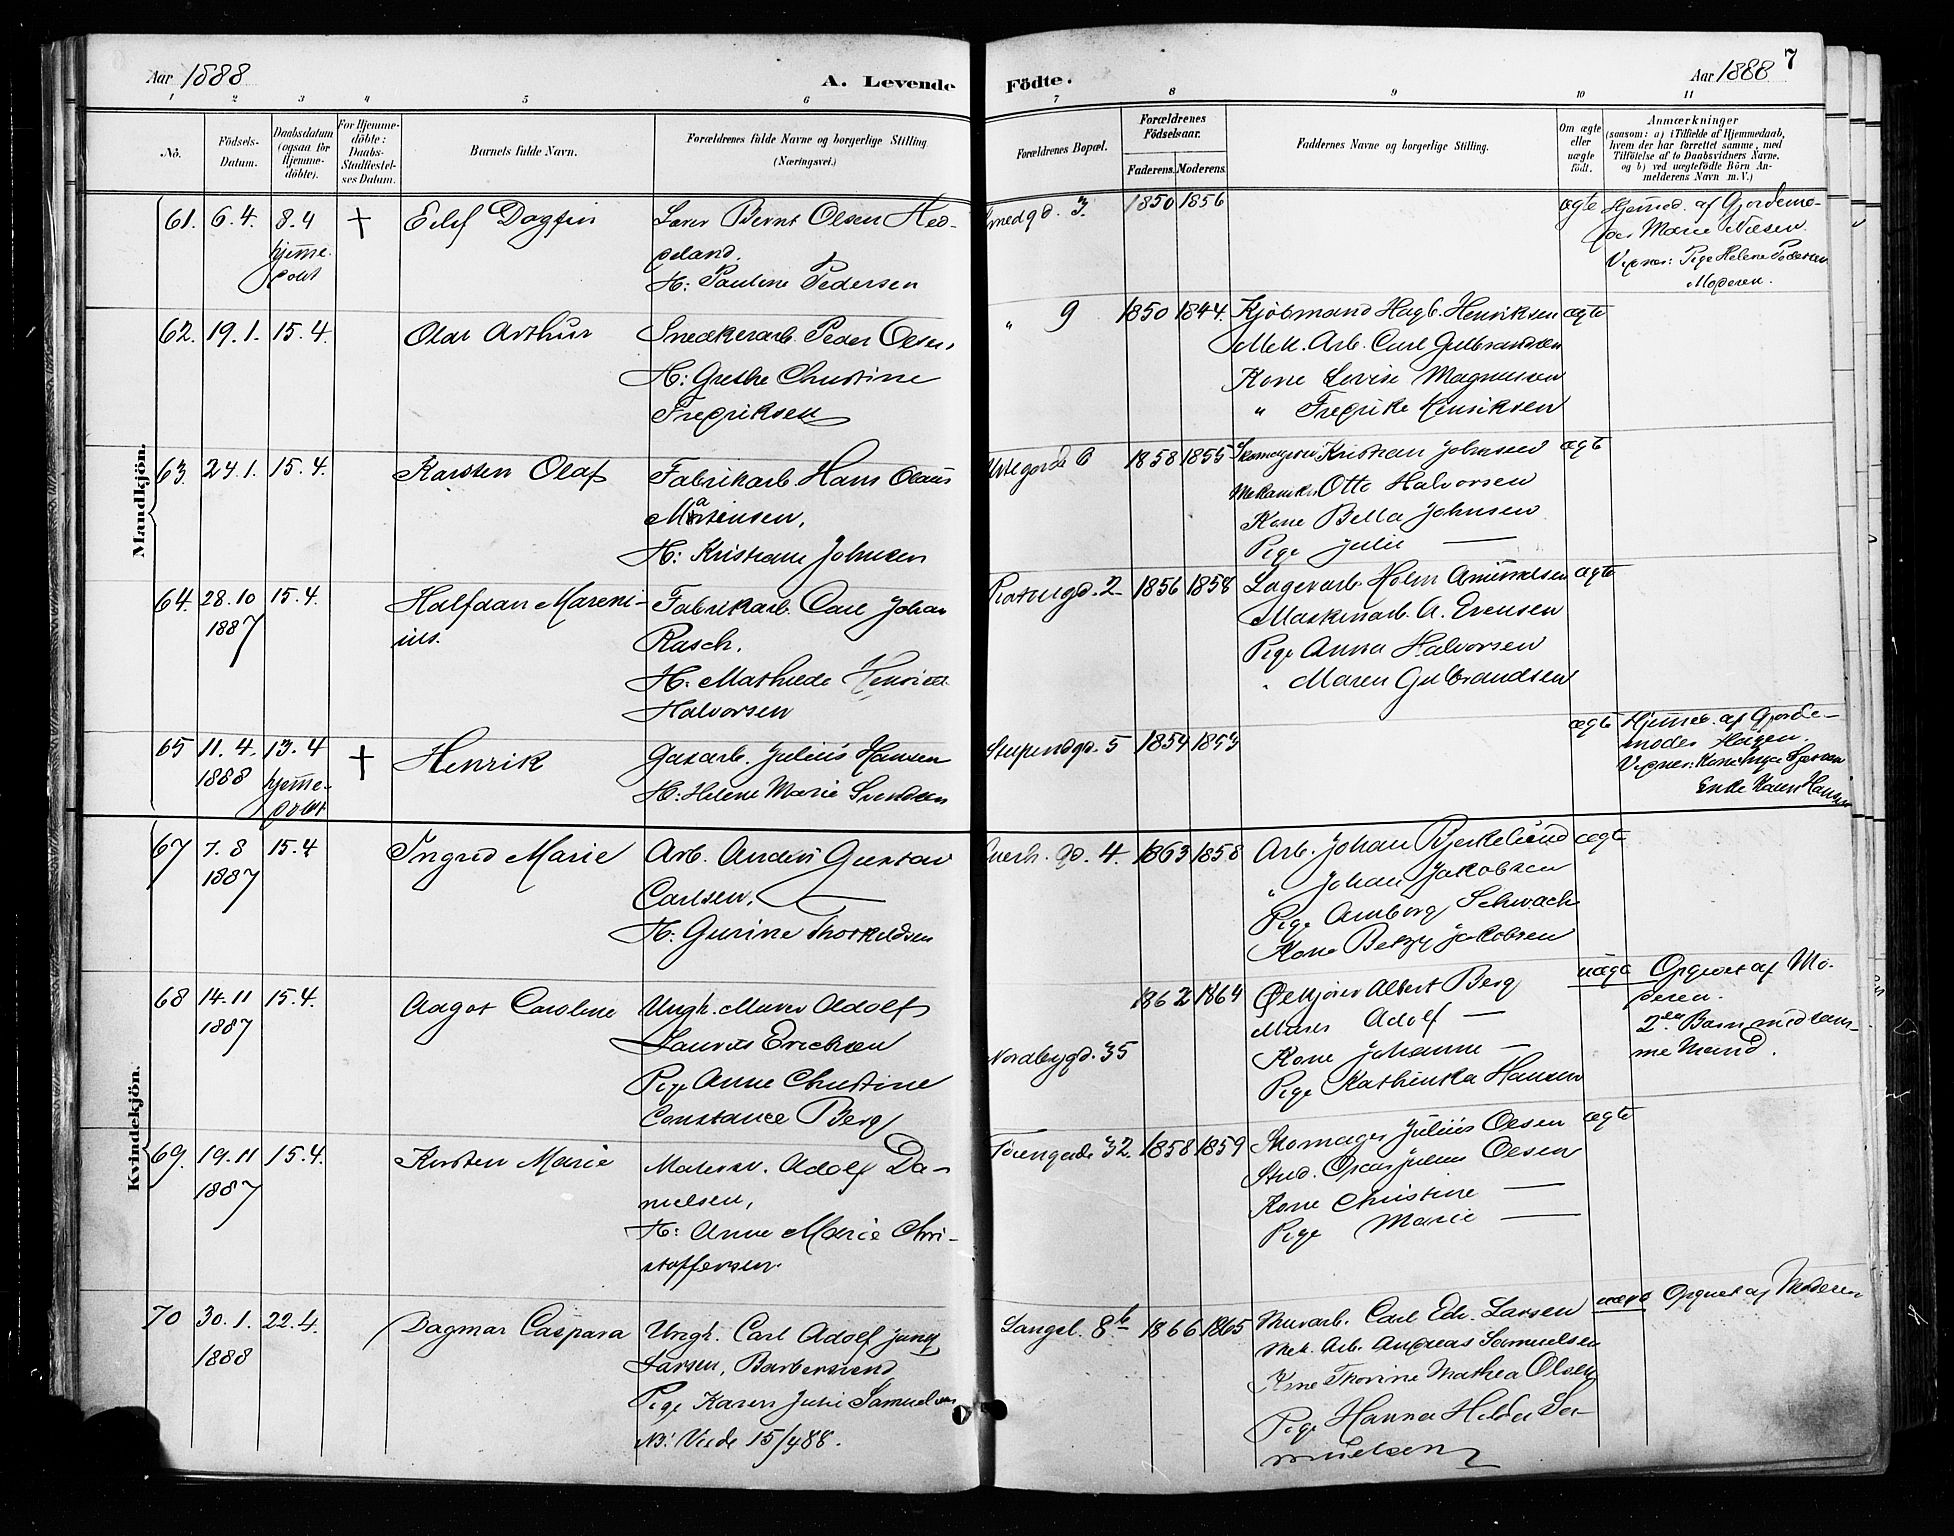 Aar 1888
A. Levende
Födte.
Aar 1888
7
1 2 3 4 5 6 7 8 9 10 11
No.
Födsels-
Datum.
Daabsdatum
(ogsaa for
Hjemme-
döbte).
For Hjemme-
döbte:
Daabs-
Stadfæstel-
ses Datum.
Barnets fulde Navn.
Forældrenes fulde Navne og borgerlige Stilling
(Næringsvei.)
Forældrenes Bopæl.
Forældrenes
Födselsaar.
Faderens. Moderens.
Faddernes Navne og borgerlige Stilling.
Om ægte
eller
uægte
födt.
Anmærkninger
(saasom: a) i Tilfælde af Hjemmedaab,
hvem der har forrettet samme, med
Tilföielse af to Daabsvidners Navne,
og b) ved uægtefödte Börn An-
melderens Navn m. V.)
Mandkjön.
61. 6.4. 8.4 +
hjemme-
döbt
Eilif Dagfin
Bernt Olsen Hed-
deland.
H: Pauline Pedersen
Smedgd. 3. 1850 1856
ægte
Hjemmed. af Gjordemo-
der Marie Nilsen.
Vidner: Pige Helene Pedersen
Moderen.
62. 19.1. 15.4.
Olaf Arthur
Snedkerarb. Peder Olsen,
H: Grethe Christine
Fredriksen
" 9 1850 1844.
Kjöbmand Hagb. Henriksen
Mek. Arb. Carl Gulbrandsen
Kone Lovise Magnussen
" Fredrike Henriksen
ægte
63. 24.1. 15.4.
Karsten Olaf
Fabrikarb. Hans Olaus
Martensen,
H: Kristiane Johnsen
Urtegade 6 1858 1855
Skomager Kristian Johnsen
Mekaniker Otto Halvorsen
Kone Bella Johnsen
Pige Julie —
ægte
64. 28.10 15.4.
1887
Halfdan Mareni-
ius.
Fabrikarb. Carl Johan
Rasch,
H: Mathilde
Halvorsen
Platougd. 2 1856 1858
Lagerarb. Holm Amundsen
Maskinarb. A. Evensen
Pige Anna Halvorsen
" Maren Gulbrandsen
ægte
65 11.4. 13.4 +
1888 hjemme-
döbt
Henrik
Gasarb. Julius Hansen
H: Helene Marie Svendsen
Stupendgd. 5 1854 1853
ægte
Hjemmed. af Gjorde-
moder Hagen.
Vidner: Kone
Enke Karen Hansen
Kvindekjön.
67 7.8 15.4
1887
Ingrid Marie
Arb. Anders Gustav
Carlsen, —
H: Gurine Thorkildsen
Aakeb. gd. 4. 1863 1858
Arb. Johan Bjerkelund
" Johan Jakobsen
Pige Amborg Schwach
Kone Betzy Jakobsen
ægte
68 14.11 15.4.
1887
Aagot Caroline
Ungk. Murer Adolf
Laurits Erichsen
Pige Anne Christine
Constance Berg
Nordbygd. 35
1862 1864
Ölkjörer Albert Berg
Murer Adolf —
Kone Johanne —
Pige Kathinka Hansen
uægte
Opgivet af Mo-
deren.
2det Barn med sam-
me Mand.
69. 19.11 15.4.
1887
Kirsten Marie
Malersv. Adolf Da-
nielsen,
H: Anne Marie Chri-
stoffersen.
Töiengade 32. 1858 1859
Skomager Julius Olsen
Stud. Oscar Julius Olsen
Kone Christine —
Pige Marie —
ægte
70 30.1. 22.4.
1888
Dagmar Caspara
Ungk. Carl Adolf
Larsen, Barbersvend,
Pige Karen Julie Samuelsen
NB: Viede 15/4 88.
Langel. 8b 1866 1865
Murarb. Carl Edv. Larsen
Mek. Arb. Andreas Samuelsen
Kone Thorine Mathea Olsen
Pige Hanna Hilda Sa-
muelsen
uægte
Opgivet af Moderen